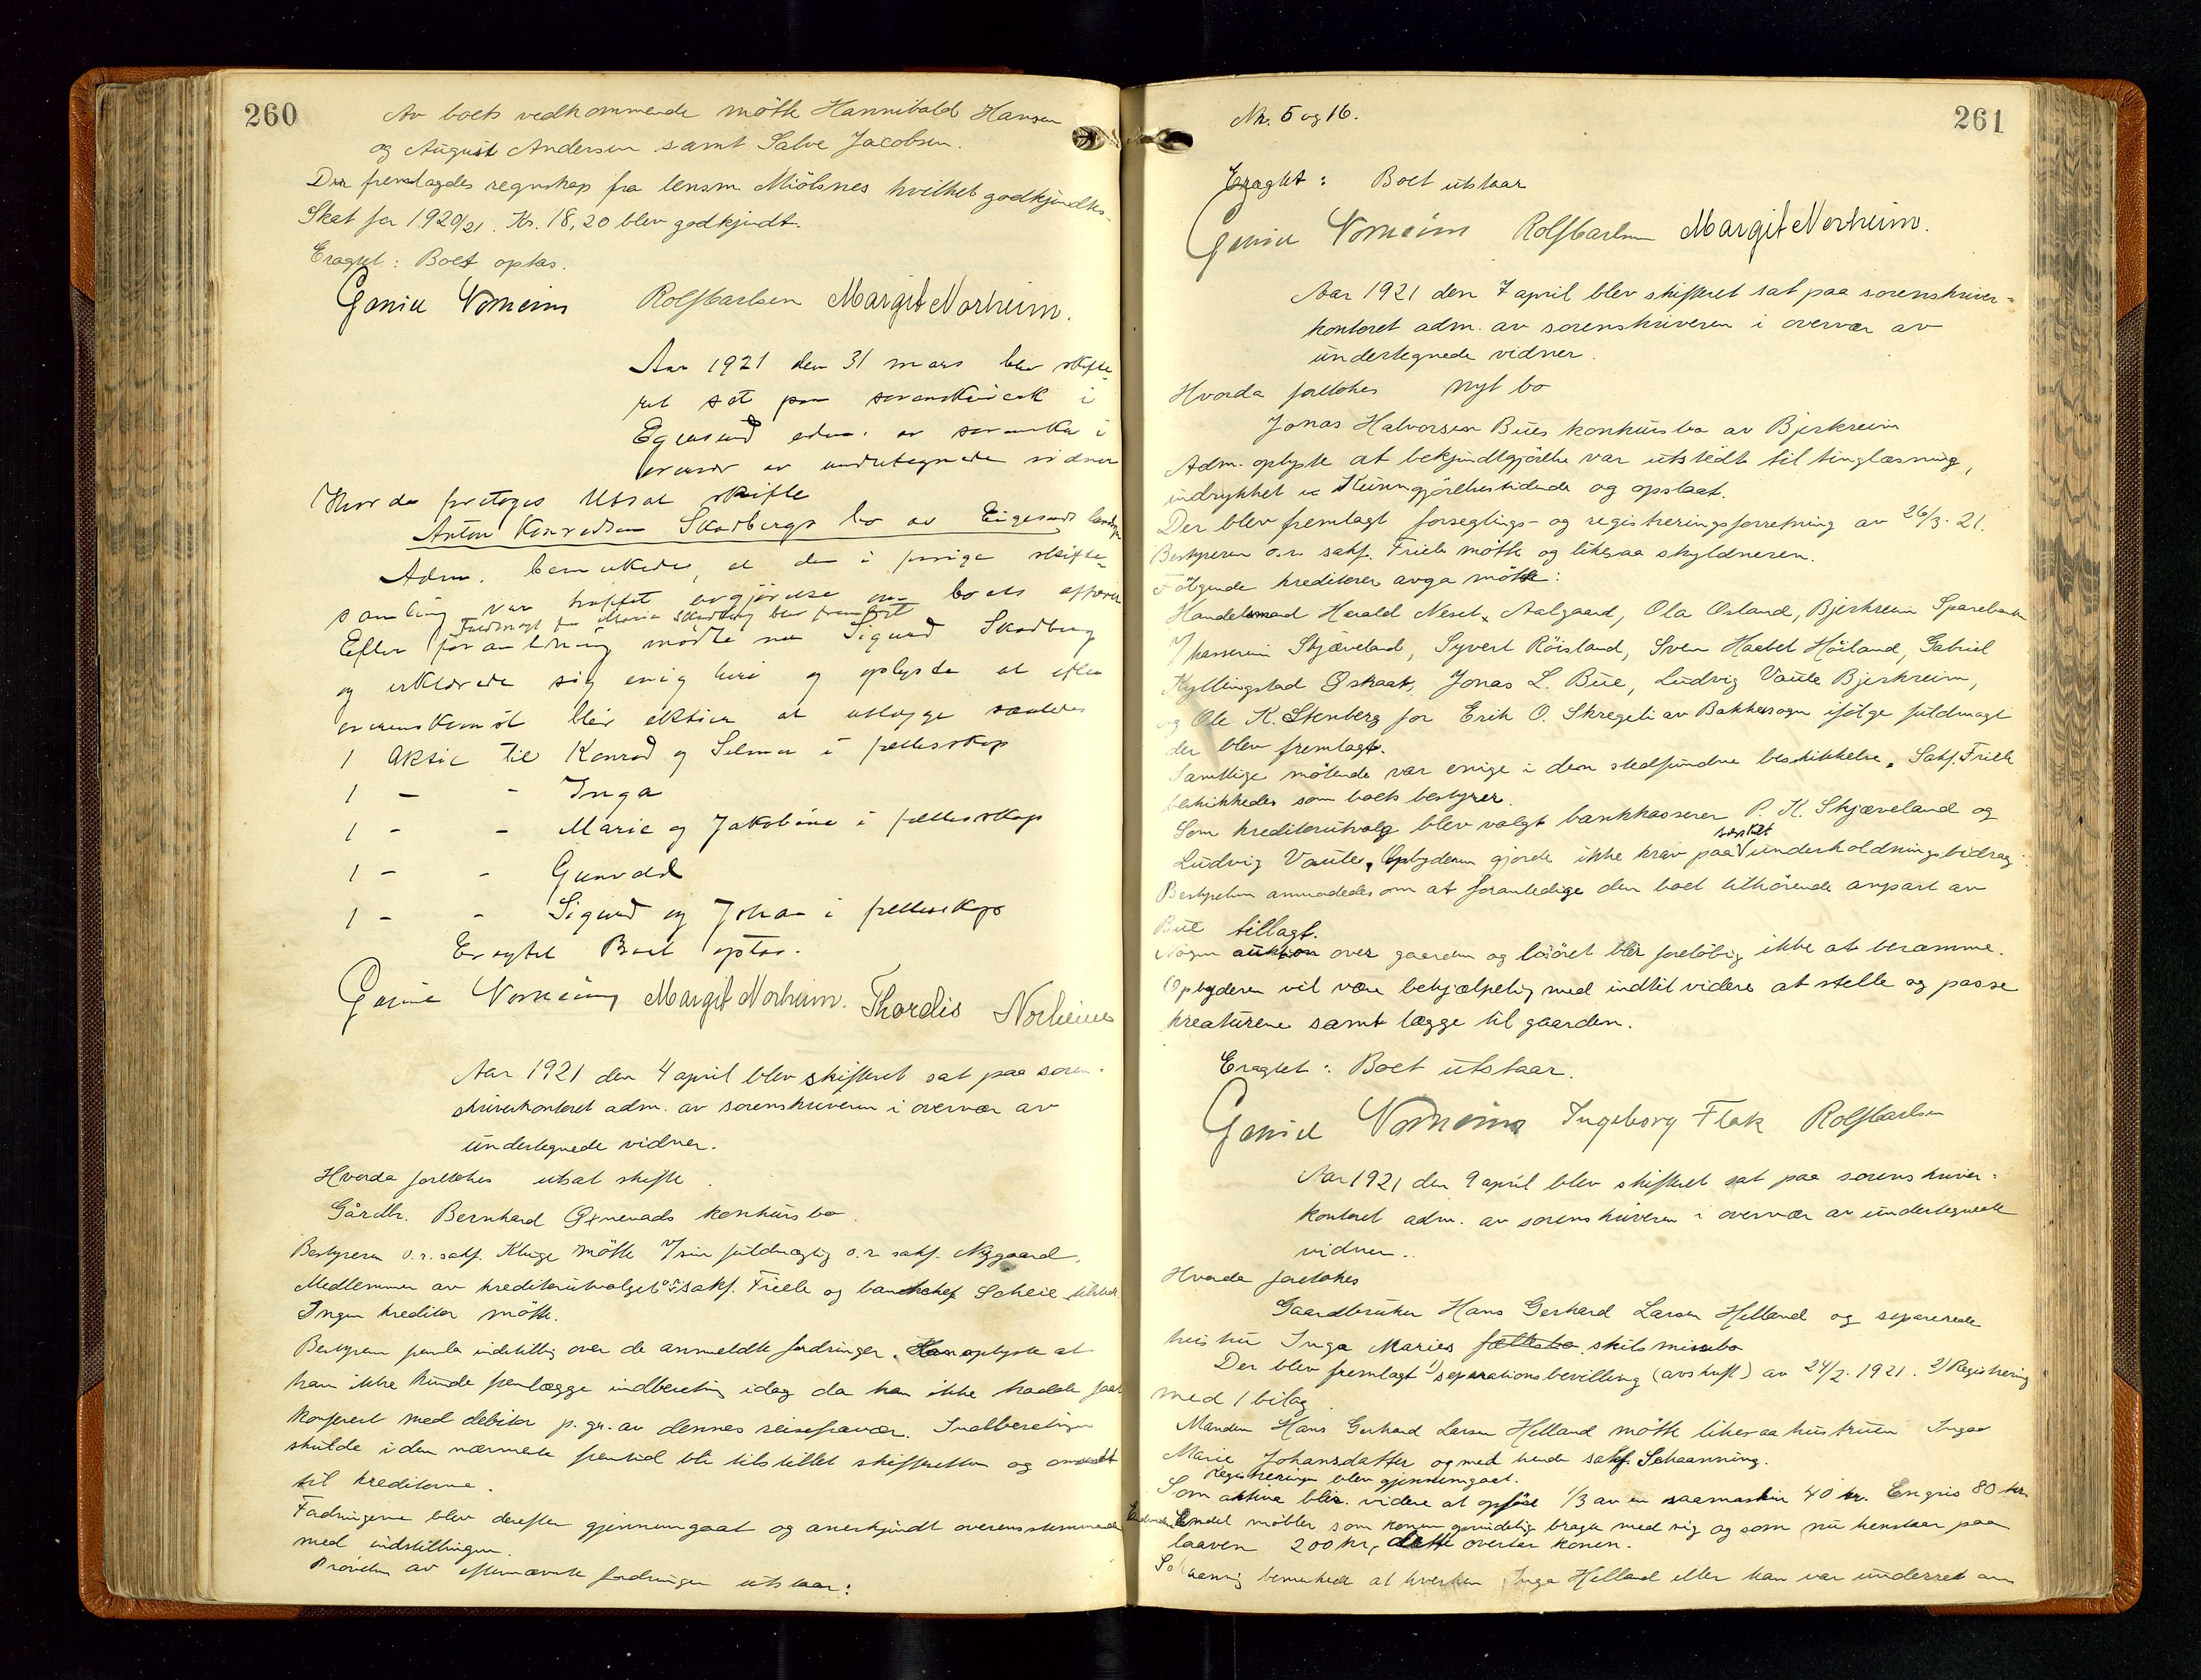 260
Av boets vedkommende mötte Hannibald Hansen
og August Andersen samt Salve Jacobsen.
Der fremlagdes regnskap fra lensm Miölsnes hvilket godkjendtes.
Skat for 1920/21. Kr. 18,20 blev godkjendt.
Eragtet: Boet optas.
Rolf Carlsen Margit Norheim.
Aar 1921 den 31 mars blev skifte-
ret sat paa sorenskriverk i
Egersund adm. av sorenskr i
overvær av undertegnede vidner
Hvorda foretoges Utsat skifte
Anton Konradsen Skadbergs bo av Eigersunds landsogn
Adm. bemerkedes, at der i forrige skifte-
samling var truffet avgjörelse om boets affærer
Fuldmagt fra Maria Skadberg blev fremlagt
Efter foranledning mödte nu Sigurd Skadberg
og erklærede sig enig heri og oplyste at efter
overenskomst blir aktier at utlægge saaledes
1 Aktie til Konrad og Selmer i fællesskap
1 - - Inga
1 - - Marie og Jakobine i fællesskap
1 - - Gunvald
1 - - Sigurd og Johan i fællesskap
Eragtet Boet optas.
Margit Norheim. Thordis Norheim
Aar 1921 den 4 april blev skifteret sat paa soren-
skriverkontoret adm. av sorenskriveren i overvær av
undertegnede vidner.
Hvorda foretokes utsat skifte
Gårdbr. Bernhard Øxnevads konkursbo.
Bestyreren o.r. sakf. Kluge mötte v/sin fuldmægtig o.r. sakf. Nygaard.
Medlemmer av kreditorutvalget o.r. sakf. Friele og bankchef Scheie tilstede.
Ingen kreditor mötte.
Bestyreren fremla indstilling over de anmeldte fordringer. Han oplyste at
han ikke kunde fremlægge indberetning idag da han ikke hadde faat
konferert med debitor p. gr. av dennes reisefravær. Indberetningen
skulde i den nærmeste fremtid bli tilstillet skifteretten og omsendt
til kreditorerne.
Fordringerne blev derefter gjennemgaat og anerkjendt overensstemmende
med indstillingen.
Prövelsen av efternævnte fordringer utstaar:
261
Nr. 5 og 16.
Eragtet: Boet utstaar
Rolf Carlsen Margit Norheim.
Aar 1921 den 7 april blev skifteret sat paa sorenskriver-
kontoret adm. av sorenskriveren i overvær av
undertegnede vidner.
Hvorda foretokes nyt bo
Jonas Halvorsen Bues konkursbo av Bjerkreim
Adm. oplyste at bekjendtgjörelse var utstedt til tinglæsning,
indrykket i Kunngjörelsestidende og opslaat.
Der blev fremlagt forseglings- og registreringsforretning av 26/3-21.
Bestyreren o.r. sakf. Friele mötte og likesaa skyldneren.
Fölgende kreditorer avga möte:
Handelsmand Harald Neset, Aalgaard, Ola Osland, Bjerkreim Sparebank
v/kasserer Skjæveland, Syvert Röisland, Sven Haabet Höiland, Gabriel
Kyllingstad Ørskaat, Jonas L. Bue, Ludvig Vaule Bjerkreim,
og Ole K. Stenberg for Erik O. Skregeli av Bakkesogn ifölge fuldmagt
der blev fremlagt.
Samtlige mötende var enige i den stedfundne beskikkelse. Sakf. Friele
beskikkedes som boets bestyrer.
Som kreditorutvalg blev valgt bankkasserer P. K. Skjæveland og
Ludvig Vaule. Opbyderen gjorde ikke krav paa særskilt underholdningsbidrag.
Bestyrelsen anmodedes om at foranledige den boet tilhörende anpart av
Bue tillagt.
Nogen auktion over gaarden og lösöret blir foreløbig ikke at beramme.
Opbyderen vil være behjælpelig med indtil videre at stelle og passe
kreaturene samt lægge til gaarden.
Eragtet: Boet utstaar.
Ingeborg Flak Rolf Carlsen
Aar 1921 den 9 april blev skifteret sat paa sorenskriver-
kontoret adm. av sorenskriveren i overvær av undertegnede
vidner.
Hvorda foretokes
Gaardbruker Hans Gerhard Larsen Helland og separerede
hustru Inga Maries fællesbo skilsmissebo
Der blev fremlagt 1) separationsbevilling (avskrift) av 24/2.1921. 2) Registrering
med 1 bilag
Manden Hans Gerhard Larsen Helland mötte likesaa hustruen Inga
Marie Johansdatter og med hende sakf. Schaanning.
Registreringen blev gjennemgaat.
Som aktiva blir videre at opföre 1/3 av en saamaskin 40 kr. En gris 80 kr.
Endel möbler som konen oprindelig bragte med sig og som nu henstaar paa
laaven 200 kr, dette overtar konen.
Schaanning bemerkede at hverken Inga Helland eller han var underret om